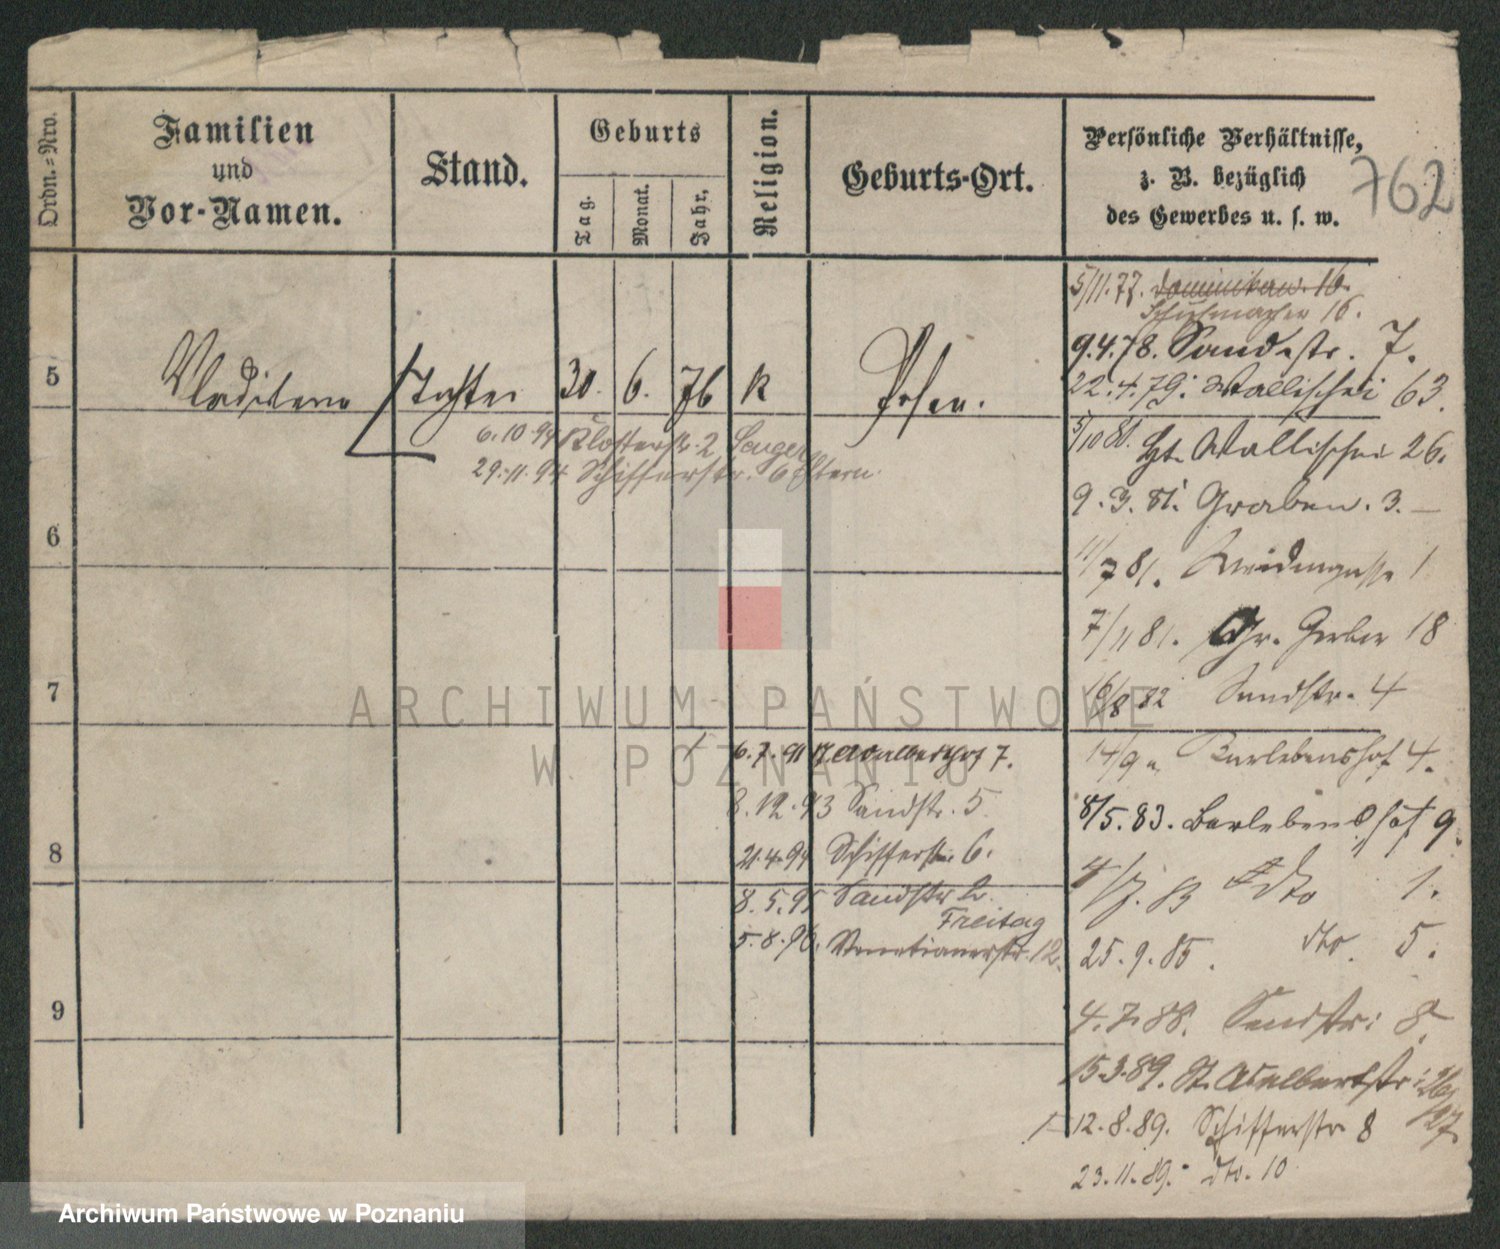 Ordn.=Nro.
Familien
und
Vor-Namen.
Stand.
Geburts
Tag.
Monat.
Jahr.
Religion.
Geburts-Ort.
Persönliche Verhältnisse,
z. B. bezüglich
des Gewerbes u. s. w.
762
5/11.77. Dominikan. 16.
Schuhmacher 16.
9.4.78. Sandstr. 7.
22.4.79. Wallischei 63.
5 Tochter 30. 6. 76 K Posen.
6.10.94 Klosterstr. 2
29.11.94 Schifferstr. 6 Eltern.
5/10 80. Wallischei 26.
9.3.81. Graben. 3. —
6
11/7 81. 1
7/11 81. Gr. Gerber 18
7
16/8 82 Sandstr. 4
6.7.91 Adalberthof 7.
14/9 Berlebenshof 4.
8.12.93 Sandstr. 5.
8/5.83. Barlebenshof 9.
8
21.4.94 Schifferstr. 6.
4/7.83 dto 1.
8.5.95 Sandstr 2.
Freitag
5.8.96. Venetianerstr. 12.
25.9.85. dto. 5.
9
4.7.88. Sandstr: 8.
15.3.89. St. Adalbertstr: 26/27.
12.8.89. Schifferstr 8
23.11.89. dto. 10
ARCHIWUM PAŃSTWOWE
W POZNANIU
Archiwum Państwowe w Poznaniu